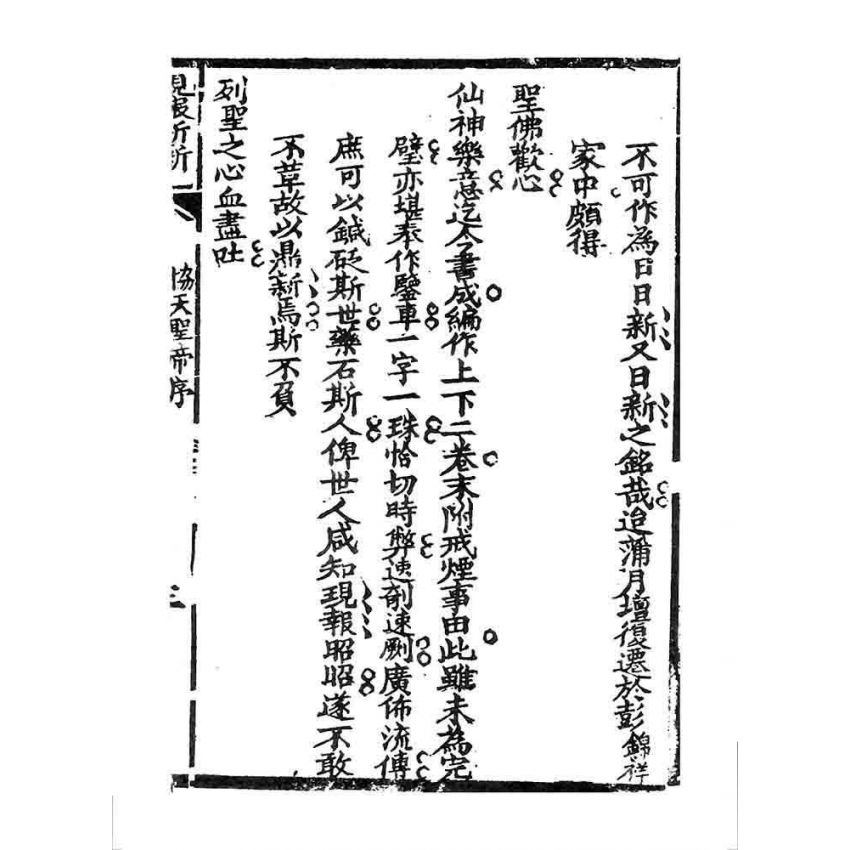 不可作為日日新又日新之銘哉迨蒲月壇復遷於彭錦祥
家中頗得
聖佛歡心
仙神樂意迄今書成編作上下二卷末附戒煙事由此雖未為完
璧亦堪奉作鑒車一字一珠恰切時弊速剞速劂廣佈流傳
庶可以鍼砭斯世藥石斯人俾世人咸知現報昭昭遂不敢
不革故以鼎新焉斯不負
列聖之心血盡吐
協天聖帝序
三